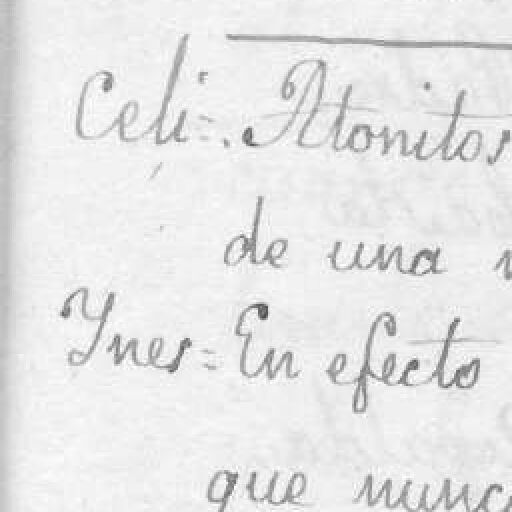 Celi=. Atonitos
de una
Ynes= En efecto
que nunca